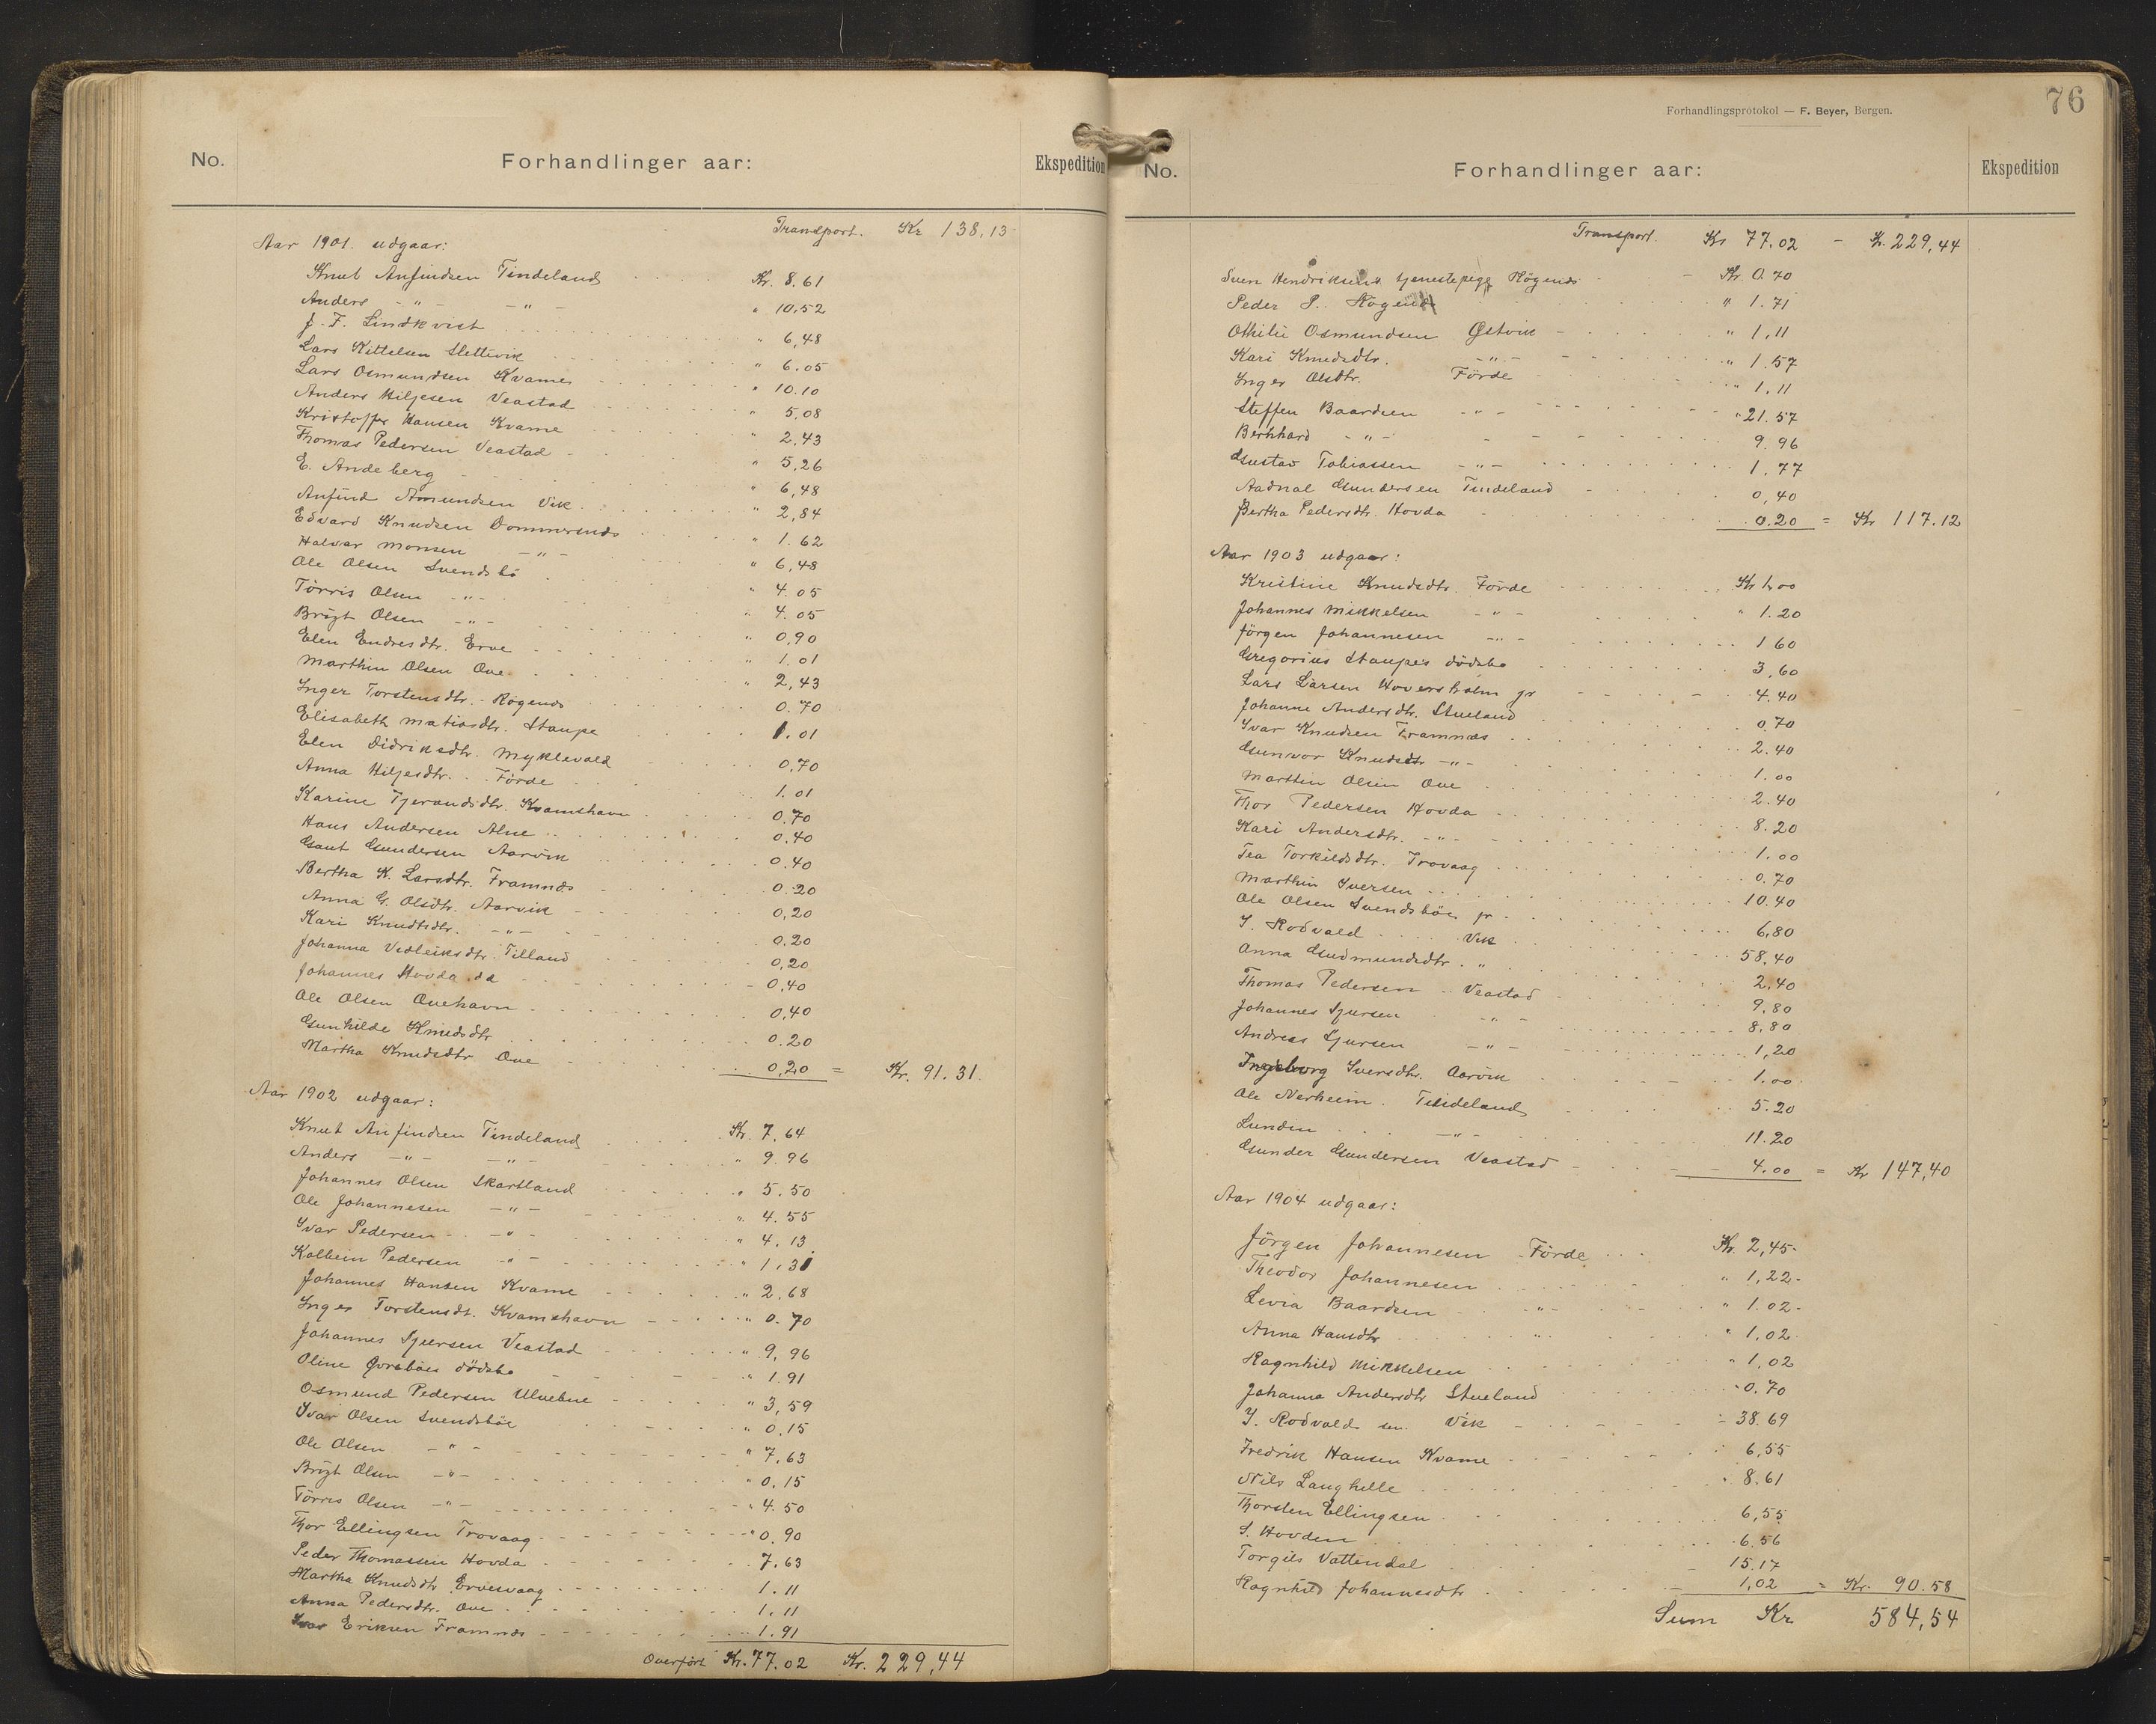 No. Forhandlinger aar: Ekspedition
Transport. Kr 138,13
Aar 1901. udgaar:
Knut Anfindsen Tindeland Kr. 8.61
Anders -"- -"- " 10,52
J. F. Lindkvist " 6,48
Lars Kittelsen Slettevik " 6.05
Lars Osmundsen Kvames " 10.10
Anders Hiljesen Veastad " 5,08
Kristoffer Hansen Kvame " 2,43
Thomas Pedersen Veastad " 5,26
E. Andeberg " 6,48
Anfind Amundsen Vik " 2,84
Edvard Knudsen Dommersnds " 1.62
Halvar Monsen -"- " 6,48
Ole Olsen Svendsbö " 4.05
Törris Olsen -"- " 4.05
Brigt Olsen -"- " 0,90
Elen Endresdtr. Erve " 1.01
Marthin Olsen Ove " 2,43
Inger Torstensdtr. Røgends 0.70
Elisabeth Matiasdtr. Staupe 1.01
Elen Didriksdtr. Myklevold 0,70
Anna Hiljesdtr. Förde 1.01
Karine Tjerandsdtr. Kvamshavn 0.70
Hans Andersen Alne 0.40
Gaut Gundersen Aarvik 0.40
Bertha K. Larsdtr. Framnds 0.20
Anna G. Olsdtr. Aarvik 0,20
Kari Knudtsdtr. -"- 0.20
Johanna Vedleiksdtr. Tilland 0,20
Johannes Hovda da 0.40
Ole Olsen Ovehavn 0,40
Gunhilde Knudsdtr 0.20
Martha Knudsdtr Ove 0,20 = Kr. 91.31.
Aar 1902 udgaar:
Knut Anfindsen Tindeland Kr. 7,64
Anders -"- -"- " 9.96
Johannes Olsen Skartland " 5.50
Ole Johannesen -"- " 4.55
Ivar Pedersen -"- " 4.13
Kolbein Pedersen -"- " 1.31
Johannes Hansen Kvame " 2.68
Inger Torstensdt. Kvamshavn " 0.70
Johannes Sjursen Veastad " 9,96
Oline Qvrebøes dödsbo " 1.91
Osmund Pedersen Ulvebne " 3,59
Ivar Olsen Svendsböe " 0,15
Ole Olsen -"- " 7,63
Brigt Olsen -"- " 0.15
Törres Olsen -"- " 4.50
Thor Ellingsen Trovaag " 0.90
Peder Thomassen Hovda 7.63
Martha Knudsdtr Ervesvaag 1.11
Anna Pedersdtr. Ove 1.11
Ivar Eriksen Framnds 1.91
Overført Kr. 77.02 Kr. 229,44
Forhandlingsprotokol — F. Beyer, Bergen.
76
No. Forhandlinger aar: Ekspedition
Transport. Kr 77.02 - Kr. 229,44
Sven Hendriksens tjenestepige Högends Kr. 0.70
Peder P. Hogend " 1.71
Othilie Osmundsen Østvik " 1,11
Kari Knudsdtr. -"- " 1.57
Inger Olsdtr. Förde " 1.11
Steffen Baardsen -"- " 21.57
Bernhard -"- 9.96
Gustav Tobiassen -"- 1.77
Aadnal Gundersen Tindeland 0,40
Bertha Pedersdtr. Hovda 0.20 = Kr 117.12
Aar 1903 udgaar:
Kristine Knudsdtr. Förde Kr 1,00
Johannes Mikkelsen -"- " 1.20
Jörgen Johannesen -"- 1 60
Gregorius Staupes dödsbo 3,60
Lars Larsen Hoversholm jr 4.40
Johanne Andersdtr. Stueland 0.70
Ivar Knudsen Framnæs 2.40
Gunvor Knudsdtr -"- 1.00
Marthin Olsen Ove 2.40
Thor Pedersen Hovda 8.20
Kari Andersdtr. -"- 1.00
Tea Torkildsdtr. Trovaag 0.70
Marthin Iversen 10.40
Ole Olsen Svendsböe jr 6,80
I. Rodvald Vik 58,40
Anna Gudmundsdtr. " 2,40
Thomas Pedersen Veastad 9,80
Johannes Sjursen -"- 8,80
Andreas Sjursen -"- 1,20
Ingeborg Iversdtr. Aarvik 1.00
Ole Nerheim. Tindeland 5.20
Lundin -"- 11.20
Gunder Gundersen Veastad 4.00 = Kr 147,40
Aar 1904 udgaar:
Jörgen Johannesen Förde Kr. 2,45-
Theodor Johannesen " 1,22-
Levia Baardsen -"- " 1.02-
Anna Hansdtr " " 1,02
Ragnhild Mikkelsen " 1,02
Johanna Andersdtr Stueland " 0.70
I. Rodvald sen. Vik 38.69
Fredrik Hansen Kvame 6,55
Nils Langhelle 8.61
Thorsten Ellingsen 6,55
S. Hovden 6.56
Torgils Vattendal 15,17
Ragnhild Johannesdtr 1,02 = Kr. 90.58
Sum Kr 584,54